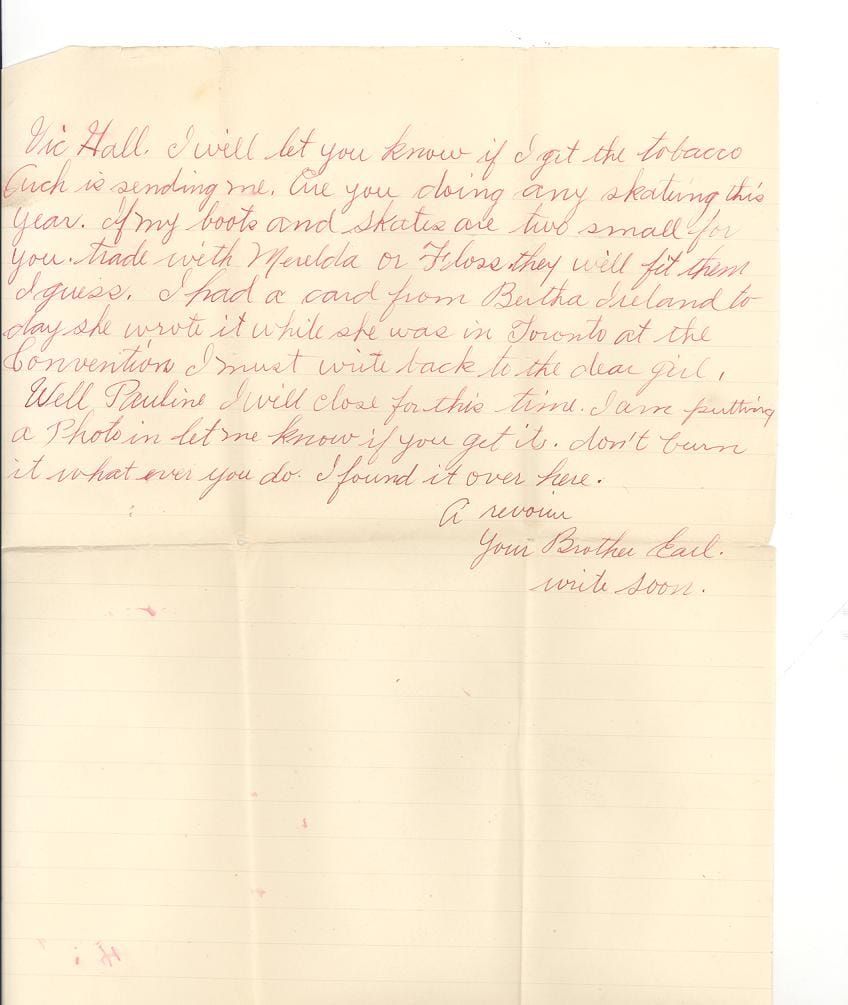 Vic Hall. I will let you know if I get the tobacco
Auch is sending me. Are you doing any skateing this
year. If my boots and skates are two small for
you. trade with Merelda or Floss they will fit them
I guess. I had a card from Bertha Ireland to
day she wrote it while she was in Toronto at the
Convention I must write back to the dear girl.
Well Pauline I will close for this time. I am putting
a Photo in let me know if you get it. don't burn
it what ever you do. I found it over here.
A revoiur
Your Brother Earl.
write soon.